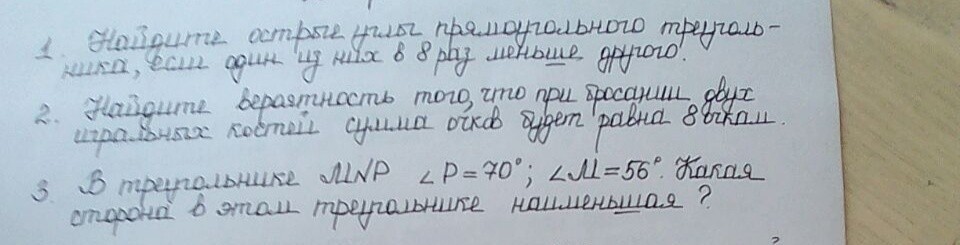 1. Найдите острые углы прямоугольного треуголь-
ника, если один из них в 8 раз меньше другого.
2. Найдите вероятность того, что при бросании двух
игральных костей сумма очков будет равна 8 очкам.
3. В треугольнике MNP ∠P=70°; ∠M=56°. Какая
сторона в этом треугольнике наименьшая?